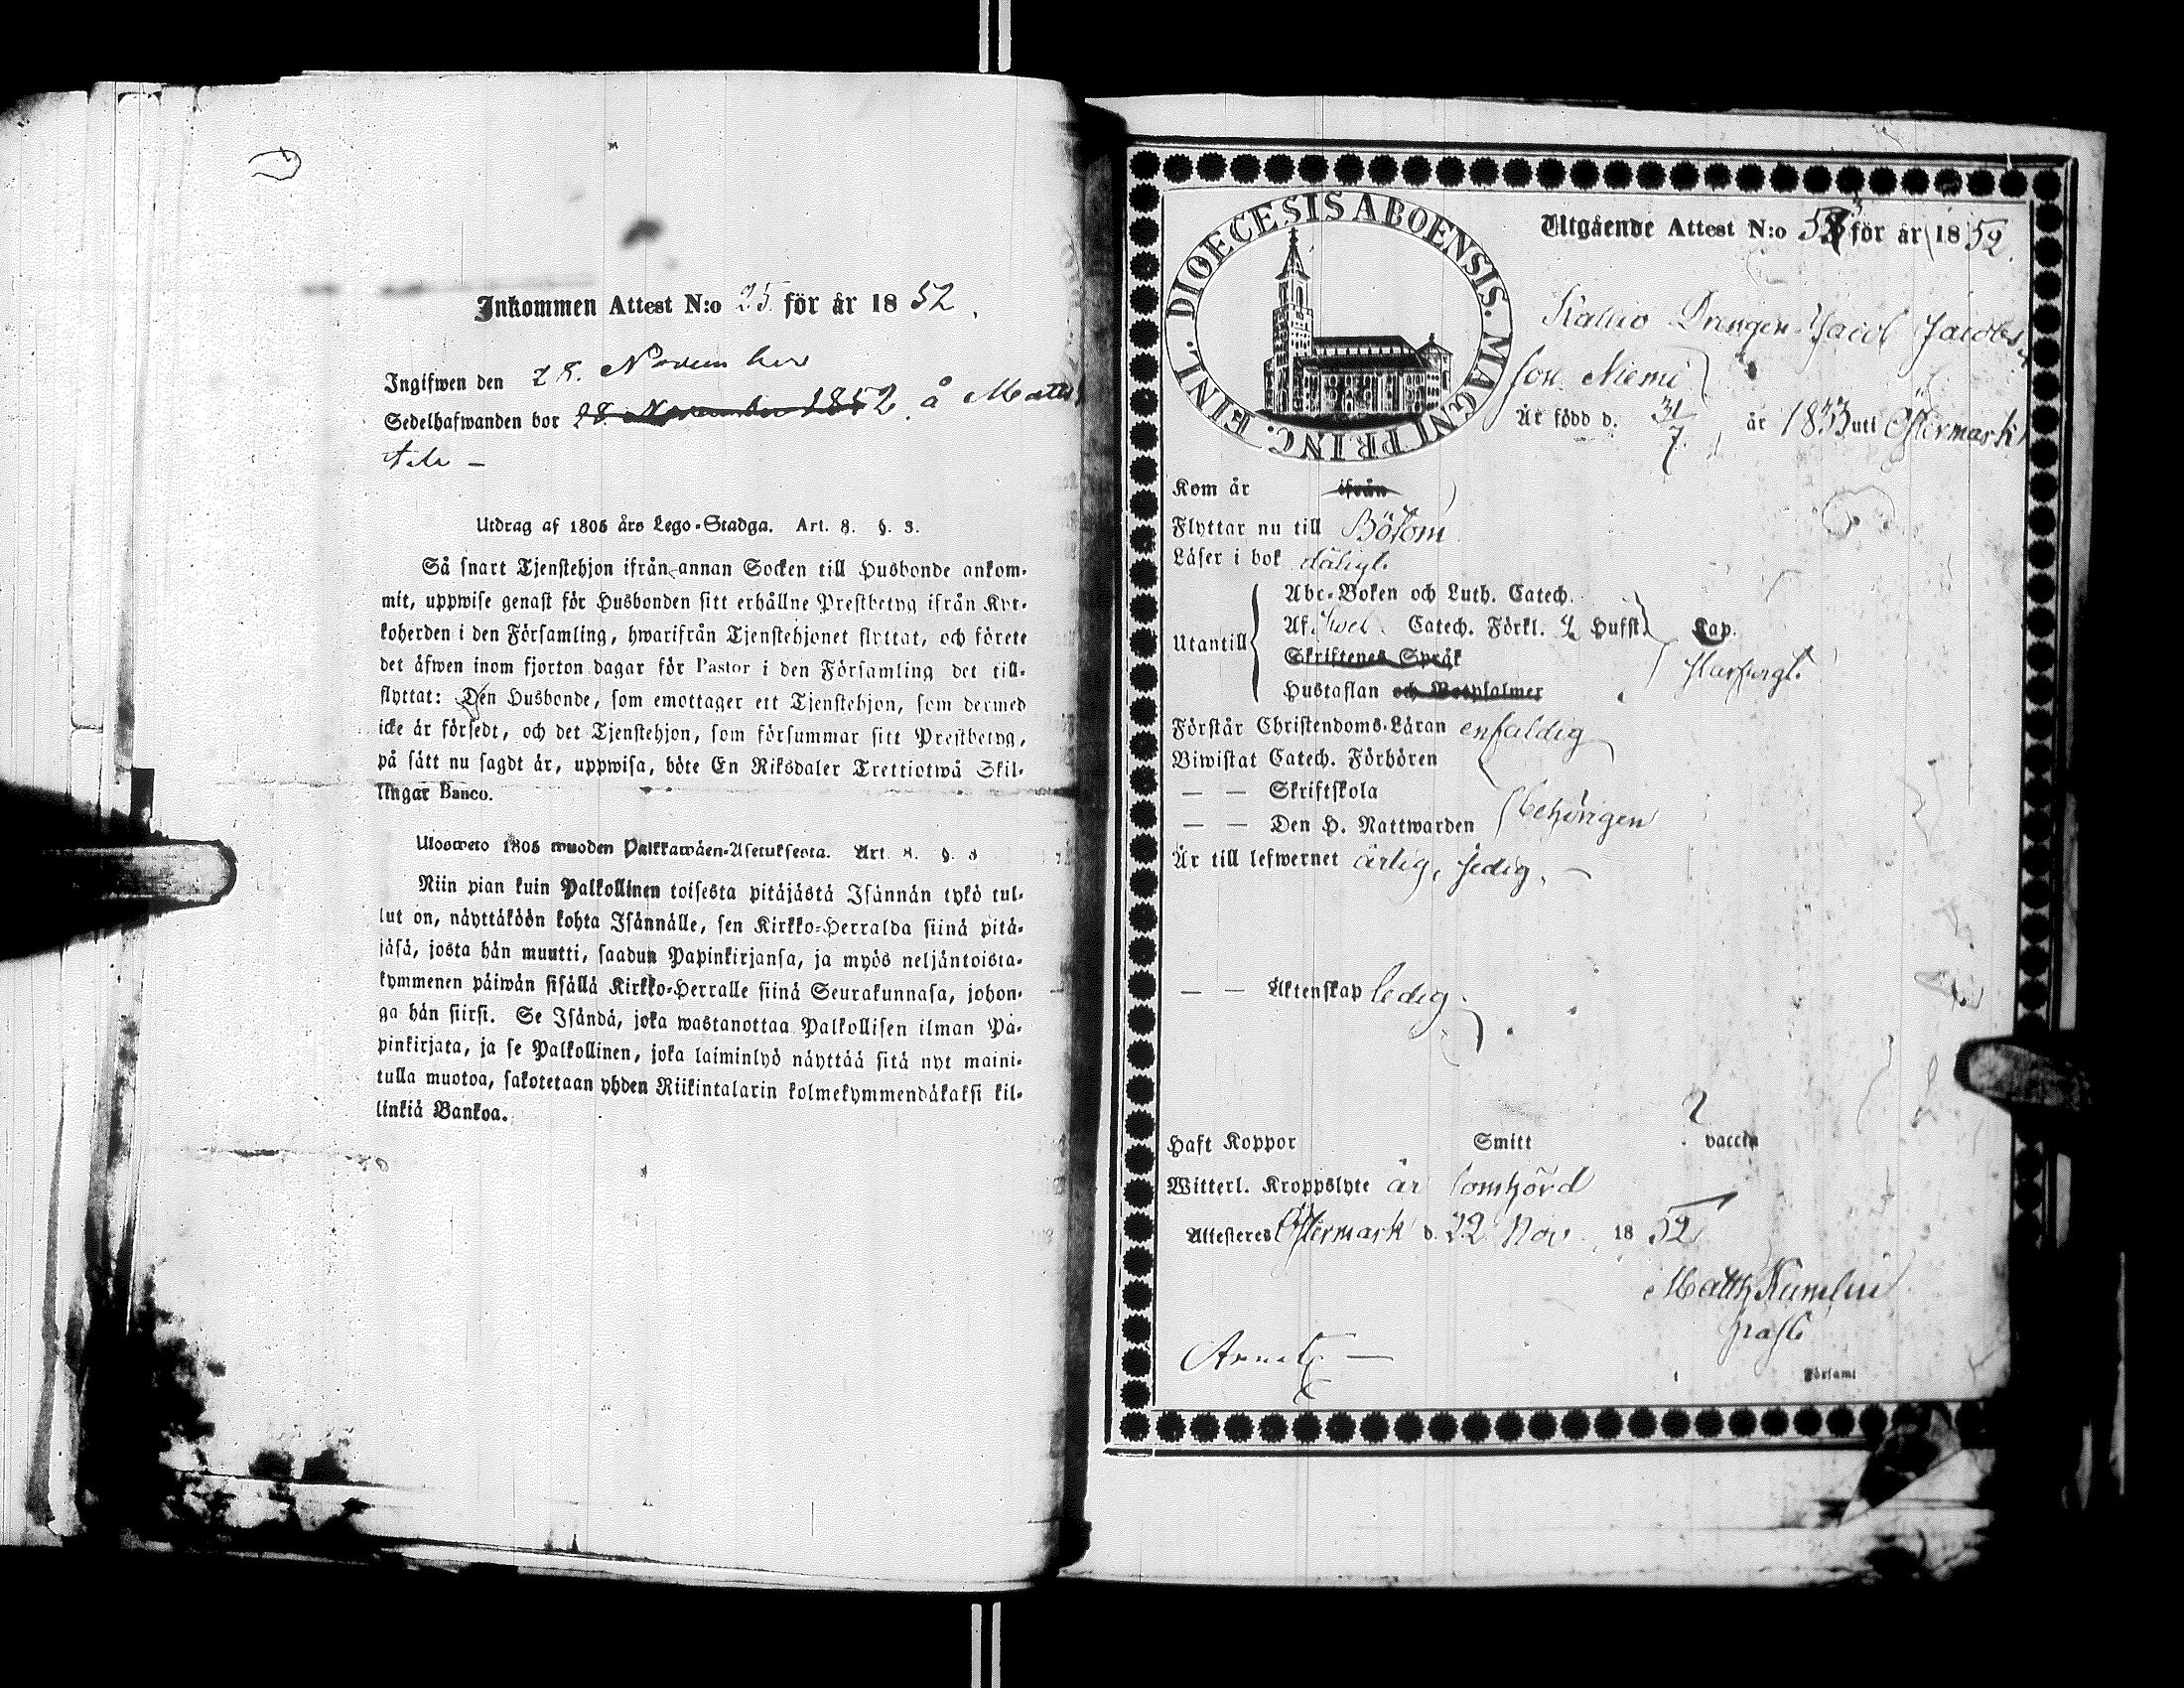 Inkommen Attest N:o 25. för år 1852.
Ingifwen den 28. November
Sedelhafwanden bor 28 November 1852. å
Utdrag af 1805 års Lego-Stadga. Art. 8. §. 3.
Så snart Tjenstehjon ifrån annan Socken till Husbonde ankom-
mit, uppwise genast för Husbonden sitt erhållne Prestbetyg ifrån Kyr-
koherden i den Församling, hwarifrån Tjenstehjonet flyttat, och förete
det äfwen inom fjorton dagar för Pastor i den Församling det till-
flyttat: Den Husbonde, som emottager ett Tjenstehjon, som dermed
icke är försedt, och det Tjenstehjon, som försummar sitt Prestbetyg,
på sätt nu sagdt är, uppwisa, böte En Riksdaler Trettiotwå Skil-
lingar Banco.
Ulosweto 1805 wuoden Palkkawäen-Asetuksesta. Art. 8. §. 3
Niin pian kuin Palkollinen toisesta pitäjästä Isännän tykö tul-
lut on, näyttäköön kohta Isännälle, sen Kirkko-Herralda siinä pitä-
jäsä, josta hän muutti, saadun Papinkirjansa, ja myös neljäntoista-
kymmenen päiwän sisällä Kirkko-Herralle siinä Seurakunnasa, johon-
ga hän siirsi. Se Isändä, joka wastanottaa Palkollisen ilman Pa-
pinkirjata, ja se Palkollinen, joka laiminlyö näyttää sitä nyt maini-
tulla muotoa, sakotetaan yhden Riikintalarin kolmekymmendäkaksi kil-
linkiä Bankoa.
DIOECESIS ABOENSIS. MAGNI PRINC. FINL.
Utgående Attest N:o 53 för år 1852.
Drengen Jacob Jacobs
son Niemi
Är född d. 31/7 år 1833 uti Östermark
Kom år ifrån
Flyttar nu till Bötom
Läser i bok dåligt.
Utantill
Abc-Boken och Luth. Catech.
Af Sweb. Catech. Förkl. Hufst. Kap.
Skriftenes Språk
Hustaflan och Botpsalmer
Förstår Christendoms-Läran enfaldig
Biwistat Catech. Förhören
— — Skriftskola
— — Den H. Nattwarden behörigen
Är till lefwernet ärlig, sedig. —
— — Äktenskap ledig.
Haft Koppor Smitt vaccin
Witterl. Kroppslyte är lomhörd
Attesteres Östermark d. 22 Nov. 1852
Matth Kumlin
Församl